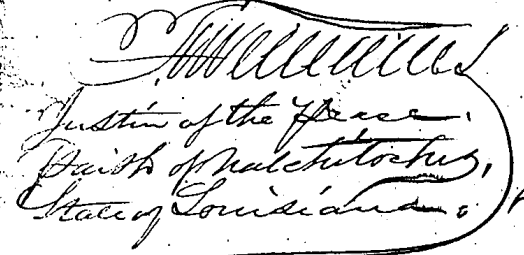 Justice of the Peace.
Parish of Natchitoches,
State of Louisiana.